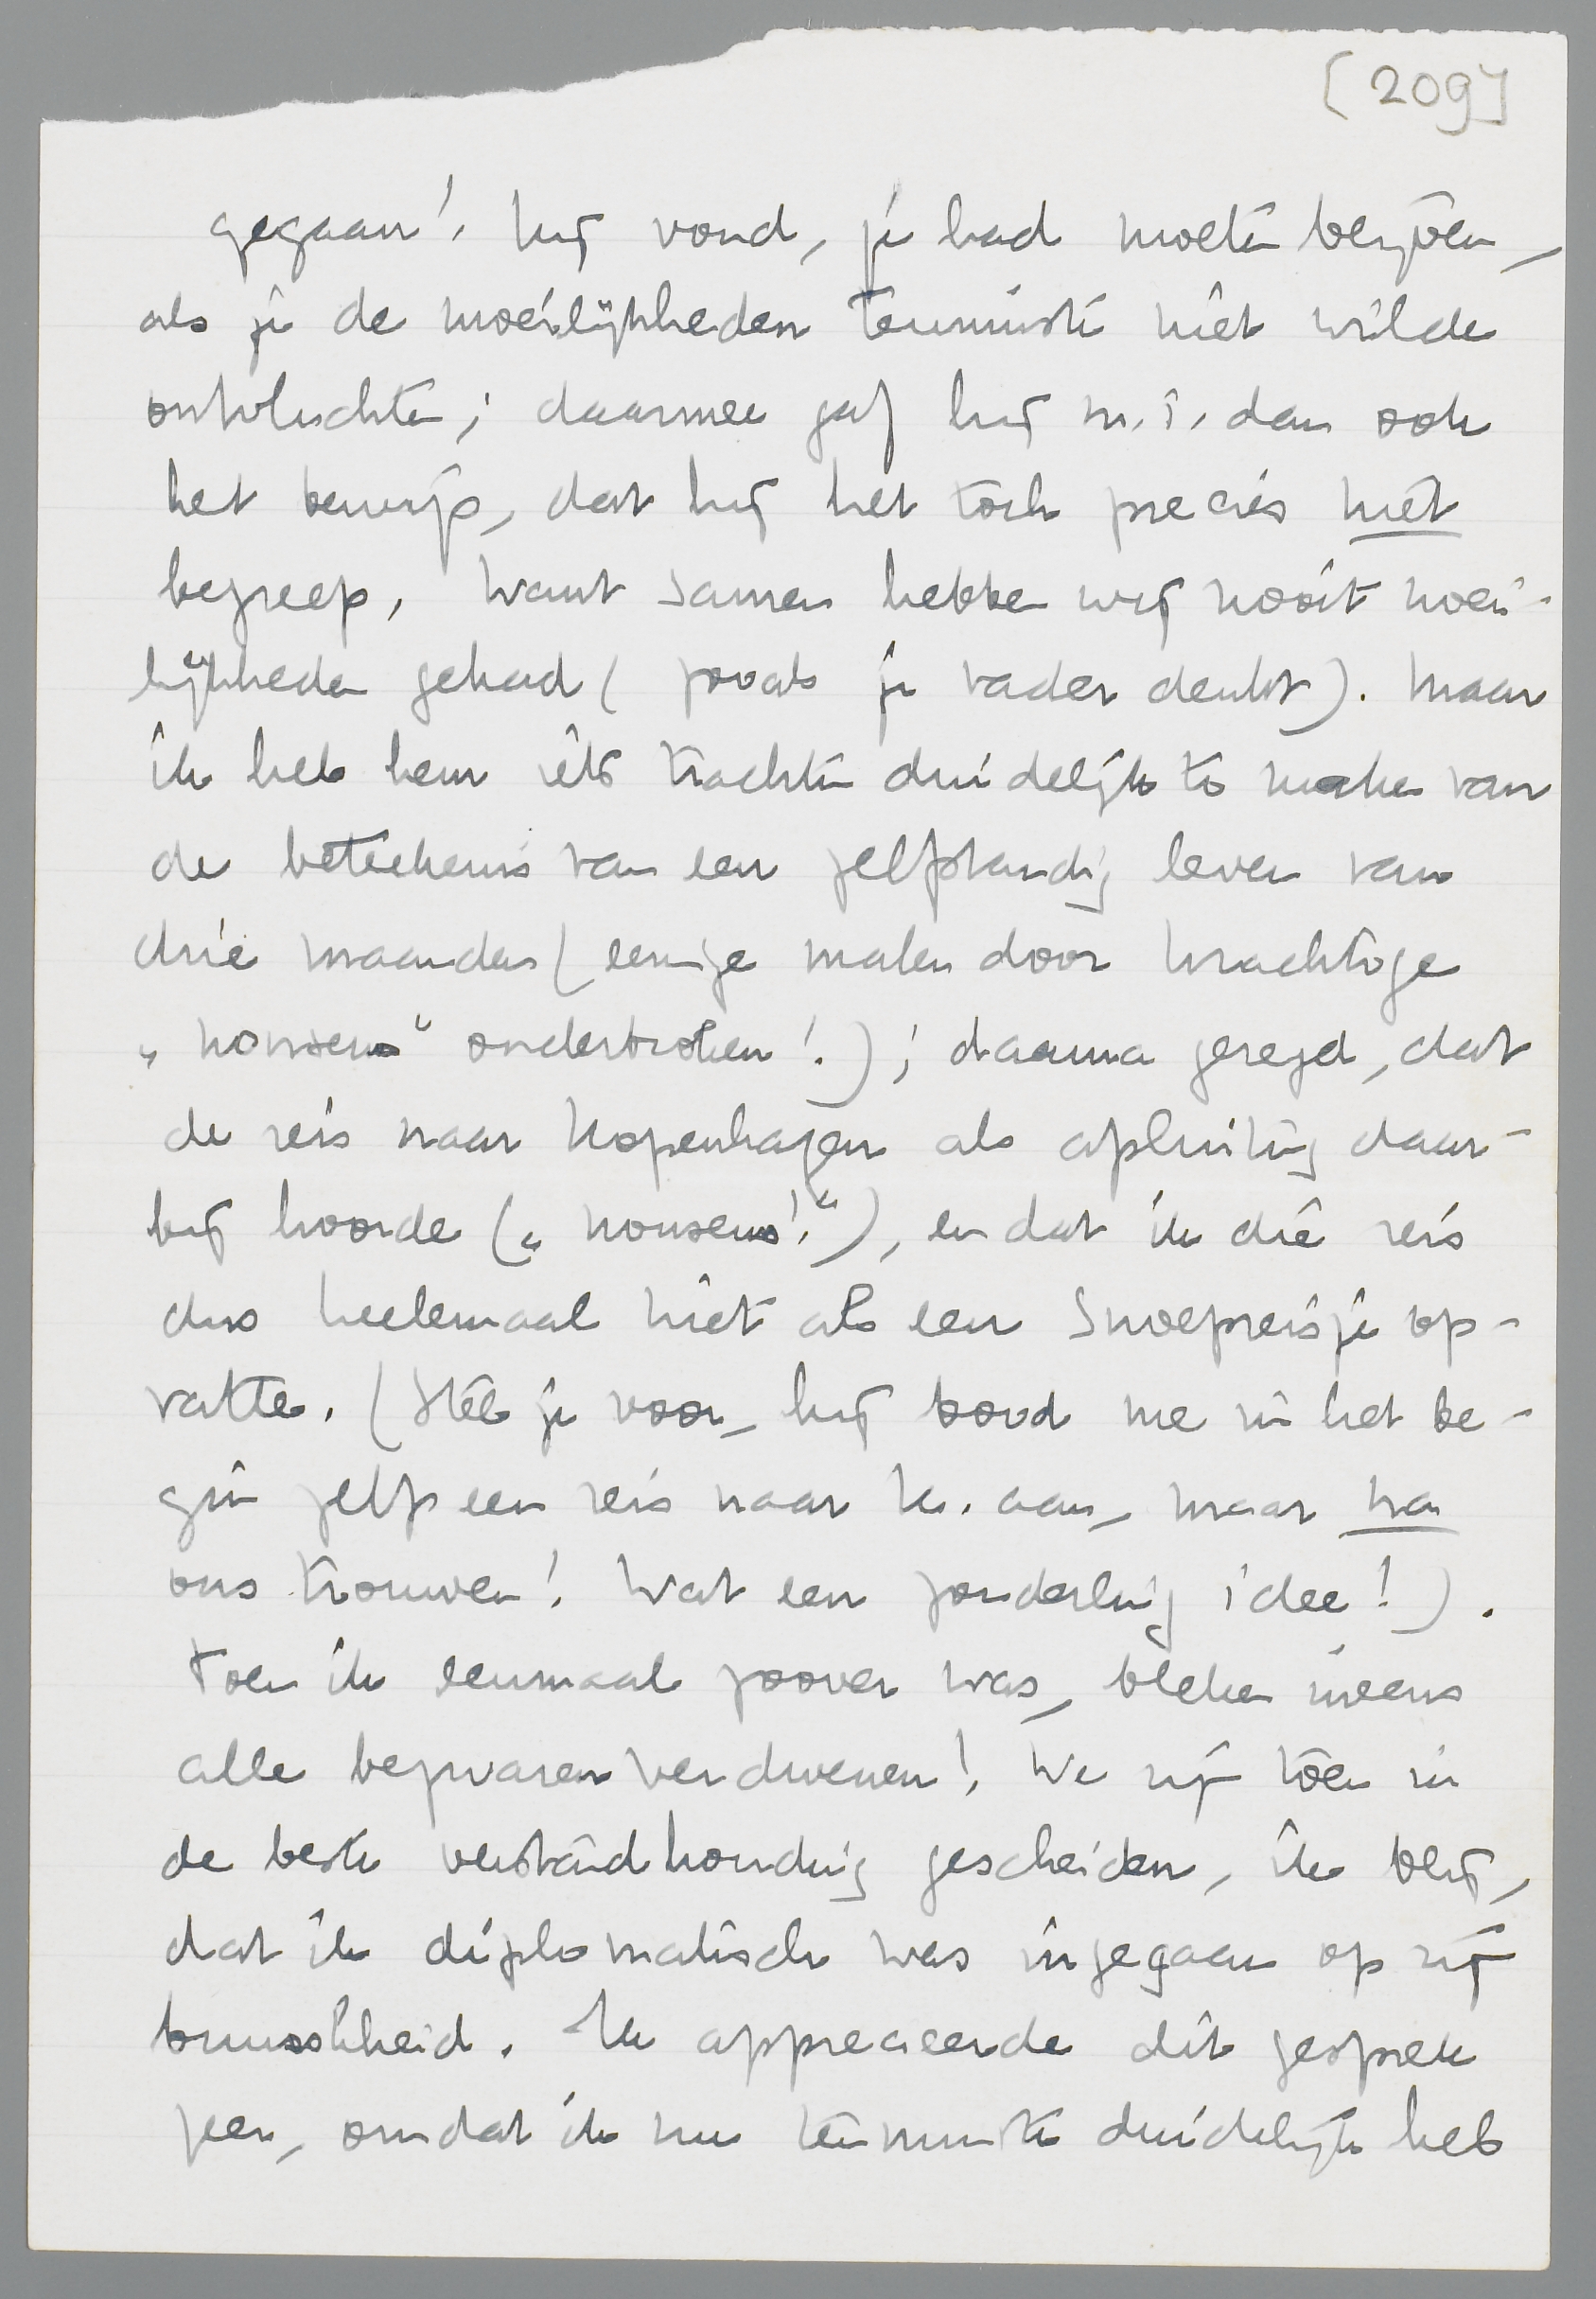 [209]
gegaan! Hij vond, je had moeten blijven,
als je de moeilijkheden tenminste niet wilde
ontvluchten; daarmee gaf hij m.i. dan ook
het bewijs, dat hij het toch precies niet
begreep, want samen hebben wij nooit moei-
lijkheden gehad (zooals je vader denkt). Maar
ik heb hem iets trachten duidelijk te maken van
de beteekenis van een zelfstandig leven van
drie maanden (eenige malen door krachtige
„nonsens" onderbroken!); daarna gezegd, dat
de reis naar Kopenhagen als afsluiting daar-
bij hoorde („nonsens!"), en dat ik die reis
dus heelemaal niet als een snoepreisje op-
vatte. (Stel je voor, hij bood me in het be-
gin zelfs een reis naar K. aan, maar na
ons trouwen! Wat een zonderling idee!).
Toen ik eenmaal zoover was, bleken ineens
alle bezwaren verdwenen! We zijn toen in
de beste verstandhouding gescheiden, ik blij,
dat ik diplomatisch was ingegaan op zijn
bruuskheid. Ik apprecieerde dit gesprek
zeer, omdat ik nu tenminste duidelijk heb